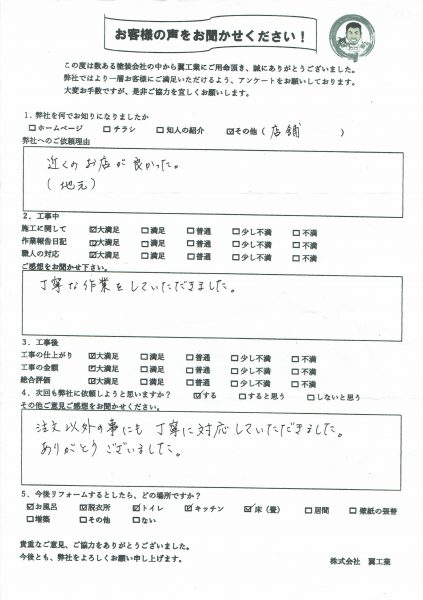 お客様の声をお聞かせください！
この度は数ある塗装会社の中から翼工業にご用命頂き、誠にありがとうございました。
弊社ではより一層お客様にご満足いただけるよう、アンケートをお願いしております。
大変お手数ですが、是非ご協力を宜しくお願いします。
1．弊社を何でお知りになりましたか
□ホームページ □チラシ □知人の紹介 ☑その他（店舗）
弊社へのご依頼理由
近くのお店が良かった。
（地元）
2．工事中
施工に関して ☑大満足 □満足 □普通 □少し不満 □不満
作業報告日記 ☑大満足 □満足 □普通 □少し不満 □不満
職人の対応 ☑大満足 □満足 □普通 □少し不満 □不満
ご感想をお聞かせ下さい。
丁寧な作業をしていただきました。
3．工事後
工事の仕上がり ☑大満足 □満足 □普通 □少し不満 □不満
工事の金額 ☑大満足 □満足 □普通 □少し不満 □不満
総合評価 ☑大満足 □満足 □普通 □少し不満 □不満
4．次回も弊社に依頼しようと思いますか？ ☑する □すると思う □しないと思う
その他ご意見ご感想をお聞かせください。
注文以外の事にも丁寧に対応していただきました。
ありがとうございました。
5．今後リフォームするとしたら、どの場所ですか？
☑お風呂 ☑脱衣所 ☑トイレ ☑キッチン ☑床（畳） □居間 □壁紙の張替
□増築 □その他 □ない
貴重なご意見、ご協力をありがとうございました。
今後とも、弊社をよろしくお願い申し上げます。 株式会社 翼工業